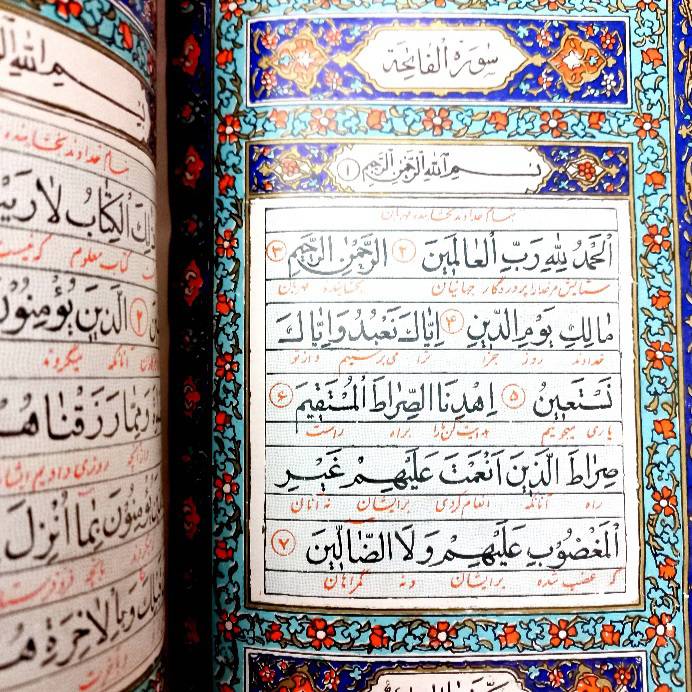 سُورَةُ الْفَاتِحَةِ
بِسْمِ اللهِ الرَّحْمٰنِ الرَّحِيمِ ۱
بنام خداوند بخشاینده مهربان
اَلْحَمْدُ لِلّٰهِ رَبِّ الْعَالَمِينَ ۲ الرَّحْمٰنِ الرَّحِيمِ ۳
ستایش مر خدا را پروردگار جهانیان بخشاینده مهربان
مَالِكِ يَوْمِ الدِّينِ ۴ اِيَّاكَ نَعْبُدُ وَاِيَّاكَ
خداوند روز جزا ترا می پرستیم و از تو
نَسْتَعِينُ ۵ اِهْدِنَا الصِّرَاطَ الْمُسْتَقِيمَ ۶
یاری میجوئیم هدایت کن ما را براه راست
صِرَاطَ الَّذِينَ اَنْعَمْتَ عَلَيْهِمْ غَيْرِ
راه آنانکه انعام کردی برایشان نه آنان
الْمَغْضُوبِ عَلَيْهِمْ وَلَا الضَّالِّينَ ۷
که غضب شده برایشان و نه گمراهان
بِسْمِ اللهِ
بنام خداوند بخشاینده
الْكِتَابُ لَا رَيْبَ
کتاب معلوم که نیست
۲ الَّذِينَ يُؤْمِنُونَ
آنانکه میگروند
وَمِمَّا رَزَقْنَاهُمْ
روزی دادیم ایشان
يُؤْمِنُونَ بِمَا اُنْزِلَ
وَبِالْاٰخِرَةِ هُمْ